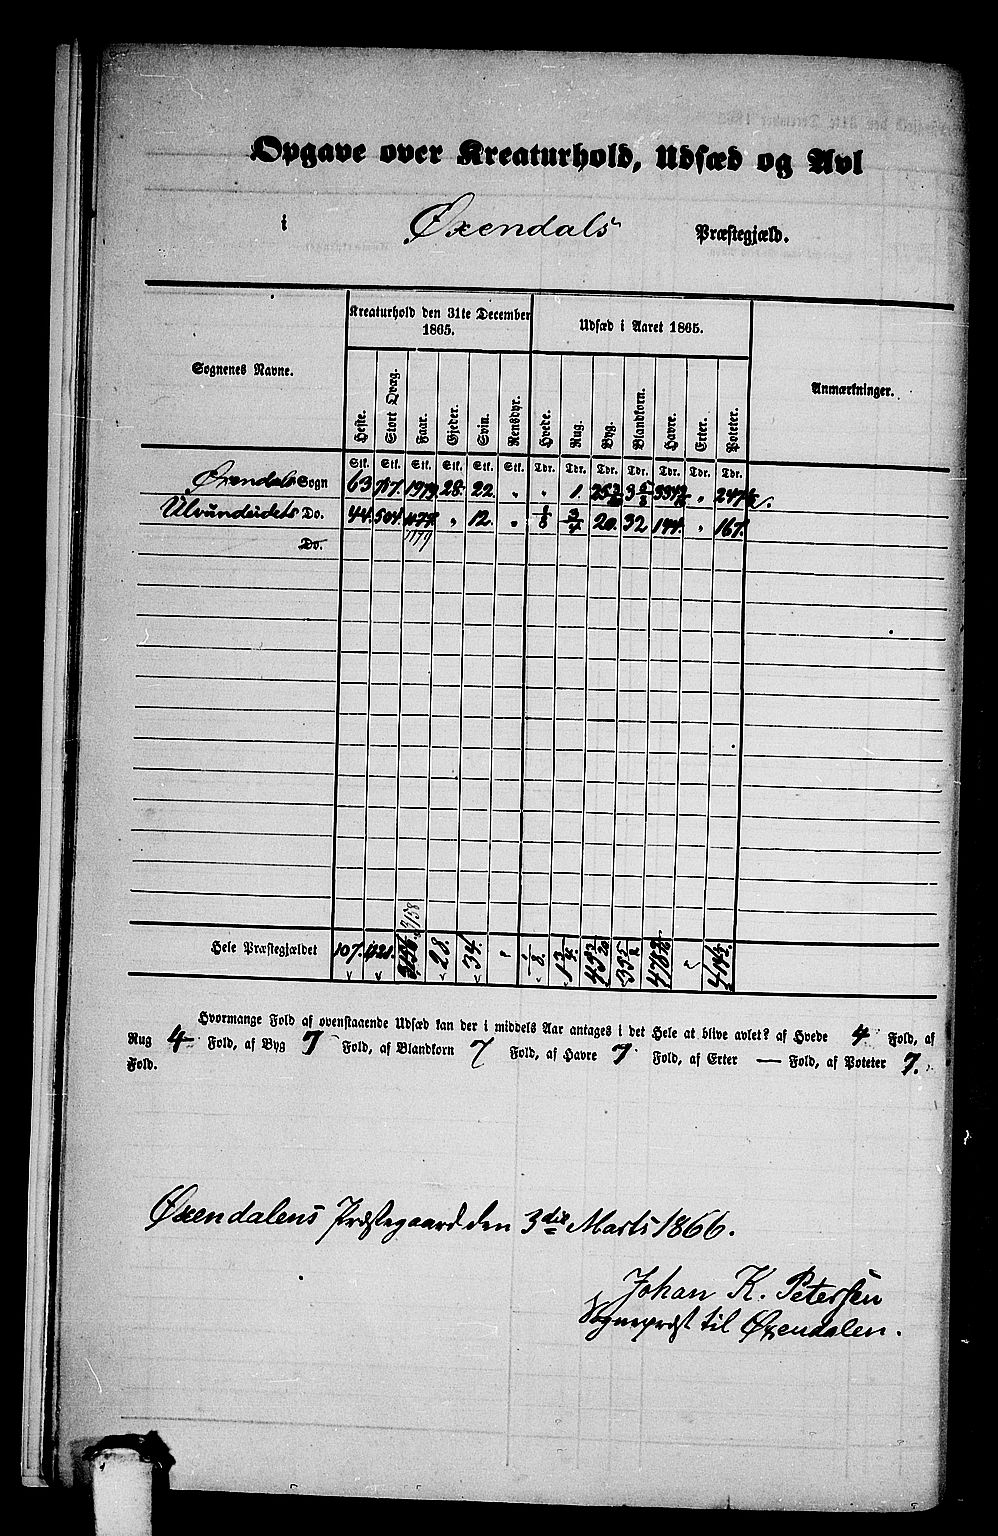 Opgave over Kreaturhold, Udsæd og Avl
i Øxendals Præstegjæld.
Sognenes Navne. Kreaturhold den 31te December 1865. Udsæd i Aaret 1865. Anmærkninger.
Heste. Stort Qvæg. Faar. Gjeder. Svin. Rensdyr. Hvede. Rug. Byg. Blandkorn. Havre. Erter. Poteter.
Stk. Stk. Stk. Stk. Stk. Stk. Tdr. Tdr. Tdr. Tdr. Tdr. Tdr. Tdr.
Øxendals Sogn 63 717. 1979 28. 22. " " 1. 3 5/8 "
Ulvundeidets Do. 44. 504. " 12. " 1/8 3/4 20. 32 144. " 167.
Do. 1179
3158
Hele Præstegjældet 107. 1221. 28. 34. " 1/8. 1 3/4. "
Hvormange Fold af ovenstaaende Udsæd kan der i middels Aar antages i det Hele at blive avlet? af Hvede 4 Fold, af
Rug 4 Fold, af Byg 7 Fold, af Blandkorn 7 Fold, af Havre 7 Fold, af Erter — Fold, af Poteter 7.
Fold.
Øxendalens Præstegaard den 3die Marts 1866.
Johan K. Petersen
Sognepræst til Øxendalen.